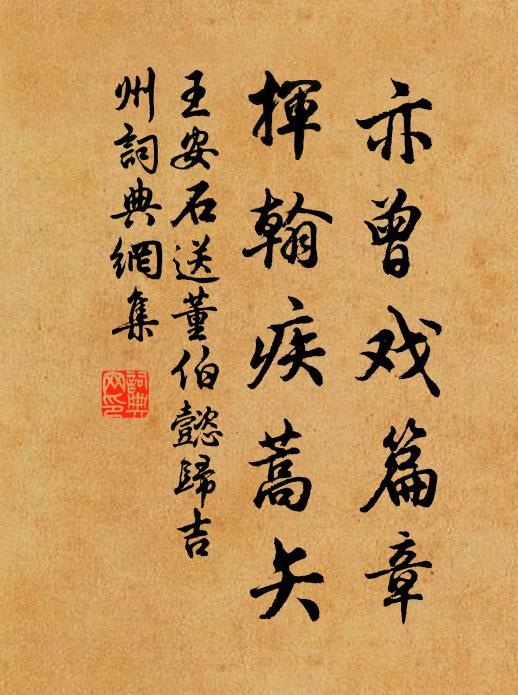 亦曾戏篇章
揮翰疾蒿矢
王安石送董伯懿歸吉
州詞典網集
詞典
网印